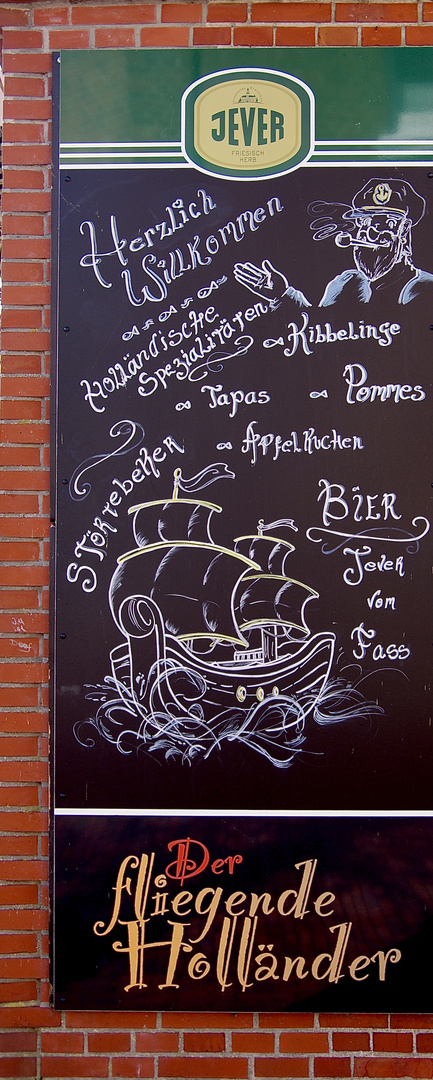 JEVER
FRIESISCH
HERB
Herzlich
Willkommen
Holländische
Spezialitäten
Kibbelinge
Tapas
Pommes
Apfelkuchen
Störtebeker
BIER
Jever
vom
Fass
Der
fliegende
Holländer